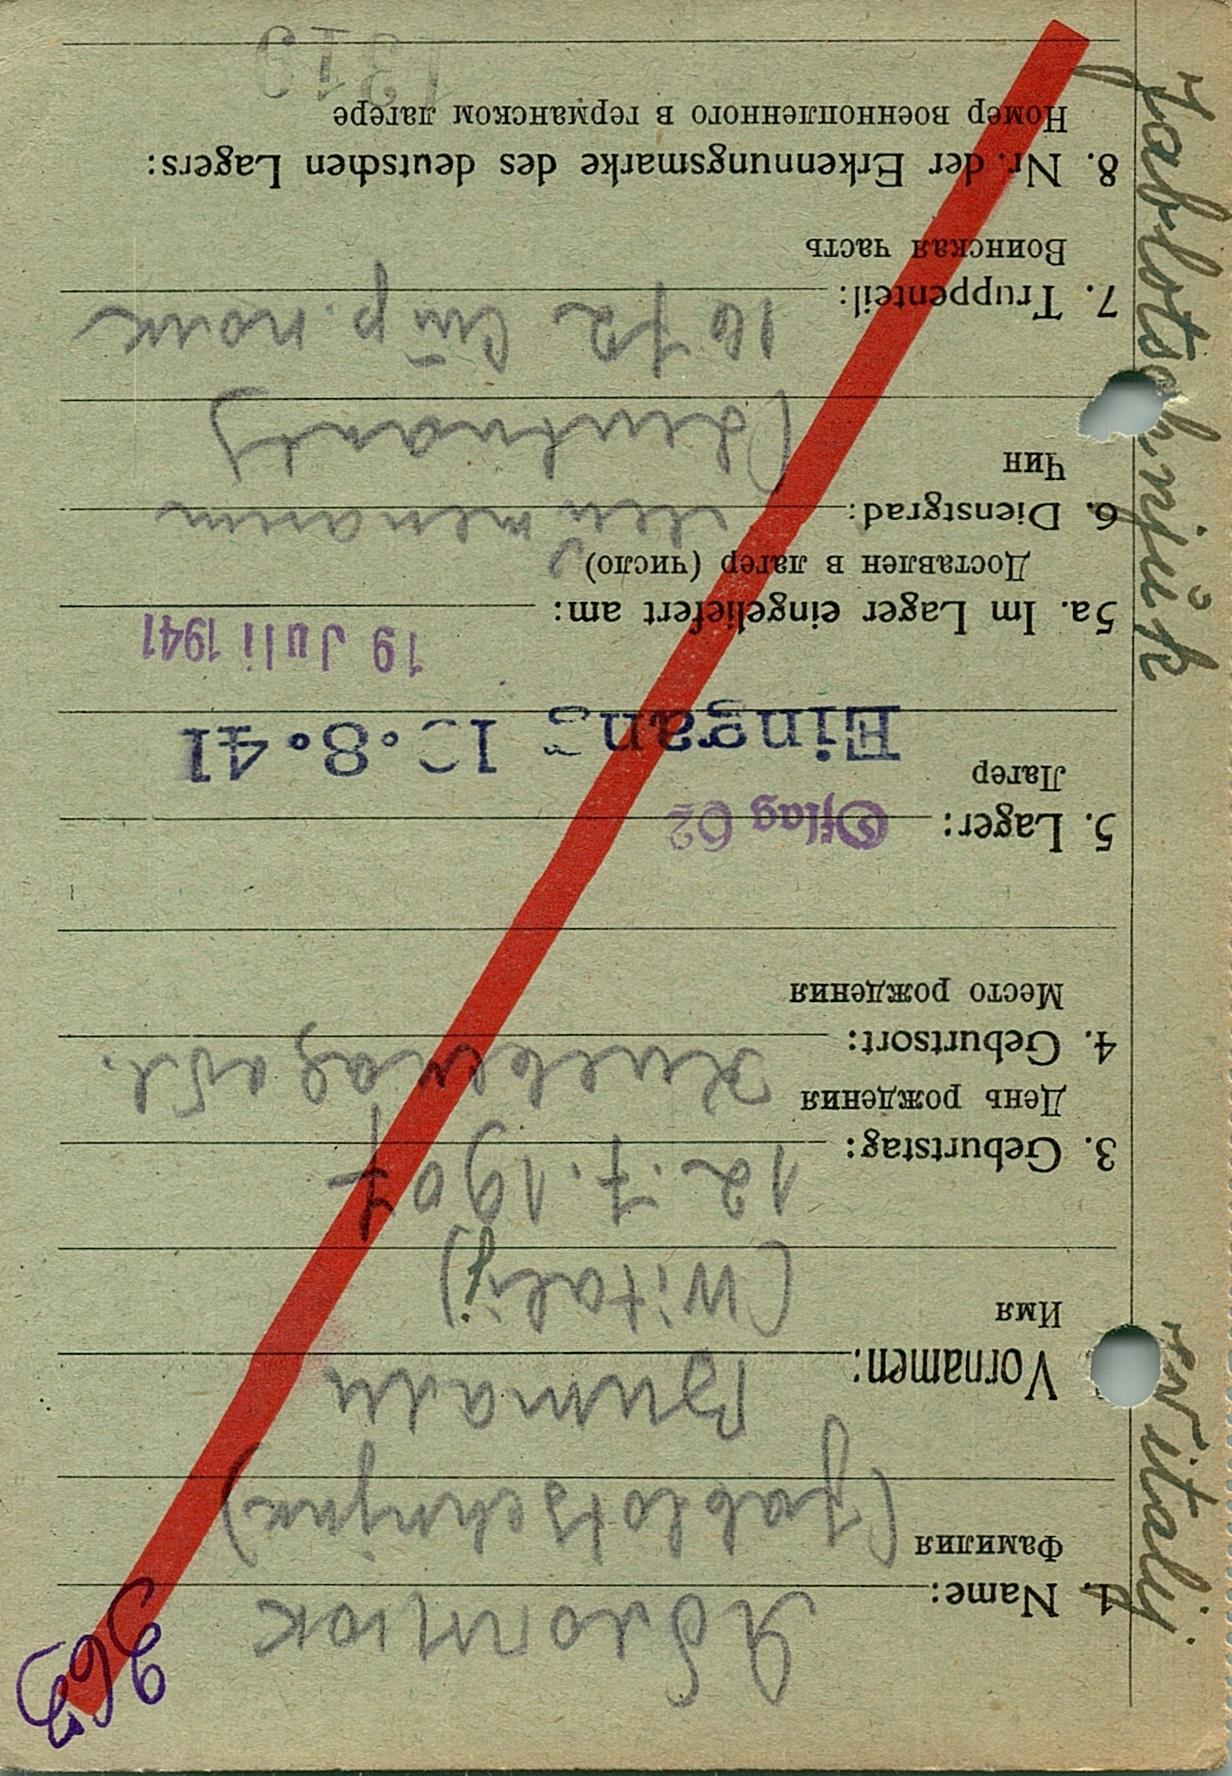 Jablotschnjuk Witalij
1. Name: Яблотнюк
Фамилия (Jablotschnjuk)
Vornamen: Витали
Имя (Witalij)
3. Geburtstag: 12.7.1907
День рождения
4. Geburtsort: Киевская обл.
Место рождения
5. Lager: Oflag 62
Лагер
Eingang 8.41
19 Juli 1941
5a. Im Lager eingeliefert am:
Доставлен в лагер (число)
6. Dienstgrad: лейтенант
Чин (Leutnant)
7. Truppenteil: стр. полк
Воинская часть
8. Nr. der Erkennungsmarke des deutschen Lagers:
Номер военнопленного в германском лагере
1319